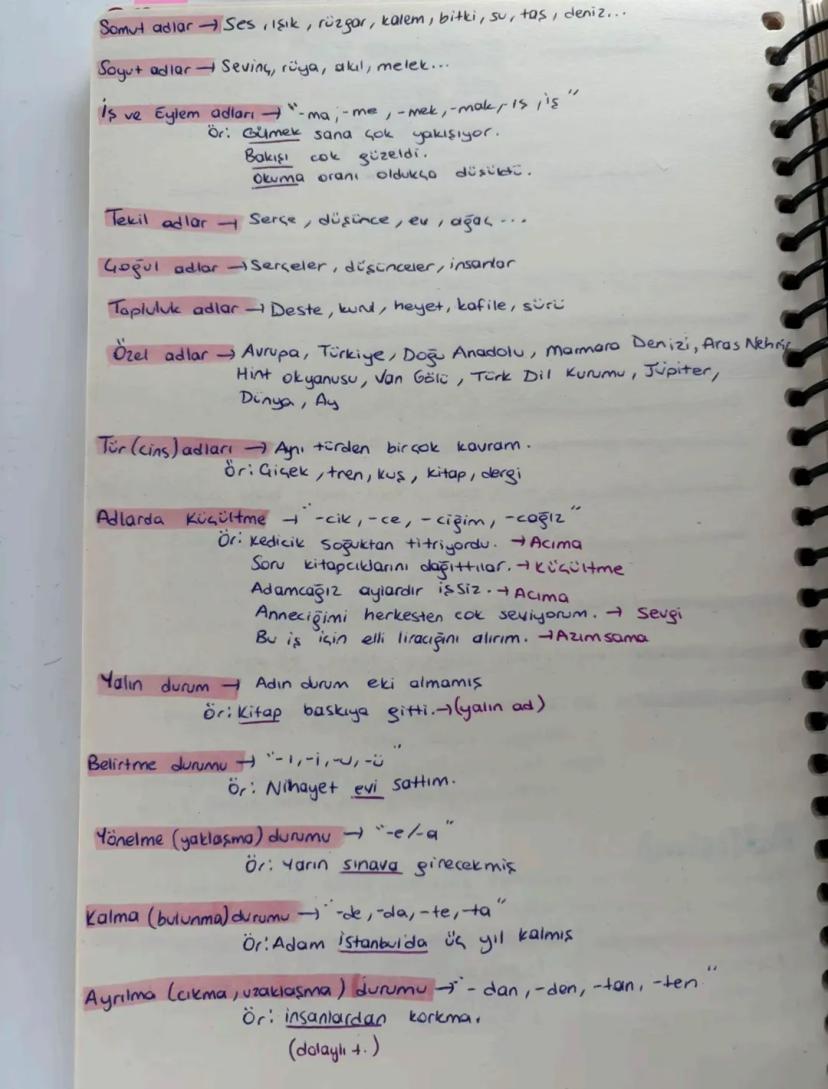 Somut adlar → Ses, ışık, rüzgar, kalem, bitki, su, taş, deniz...
Soyut adlar → Sevinç, rüya, akıl, melek...
İş ve Eylem adları → "-ma, -me, -mek, -mak, -ış, iş"
Ör: Gülmek sana çok yakışıyor.
Bakışı cok güzeldi.
Okuma oranı oldukça düşüktü.
Tekil adlar → Serçe, düşünce, ev, ağaç...
Çoğul adlar → Serçeler, düşünceler, insanlar
Topluluk adlar → Deste, kurul, heyet, kafile, sürü
Özel adlar → Avrupa, Türkiye, Doğu Anadolu, Marmara Denizi, Aras Nehri,
Hint okyanusu, Van Gölü, Türk Dil Kurumu, Jüpiter,
Dünya, Ay
Tür (cins) adları → Aynı türden birçok kavram.
Ör: Çiçek, tren, kuş, kitap, dergi
Adlarda Küçültme → "-cik, -ce, -ciğim, -cağız"
Ör: Kedicik soğuktan titriyordu. → Acıma
Soru kitapcıklarını dağıttılar. → Küçültme
Adamcağız aylardır işsiz. → Acıma
Anneciğimi herkesten cok seviyorum. → Sevgi
Bu iş için elli liracığını alırım. → Azımsama
Yalın durum → Adın durum eki almamış
Ör: Kitap baskıya gitti. → (yalın ad)
Belirtme durumu → "-ı, -i, -u, -ü"
Ör: Nihayet evi sattım.
Yönelme (yaklaşma) durumu → "-e/-a"
Ör: Yarın sınava girecekmiş
Kalma (bulunma) durumu → "-de, -da, -te, -ta"
Ör: Adam İstanbul'da üç yıl kalmış
Ayrılma (cıkma, uzaklaşma) durumu → "-dan, -den, -tan, -ten"
Ör: insanlardan korkma.
(dolaylı t.)